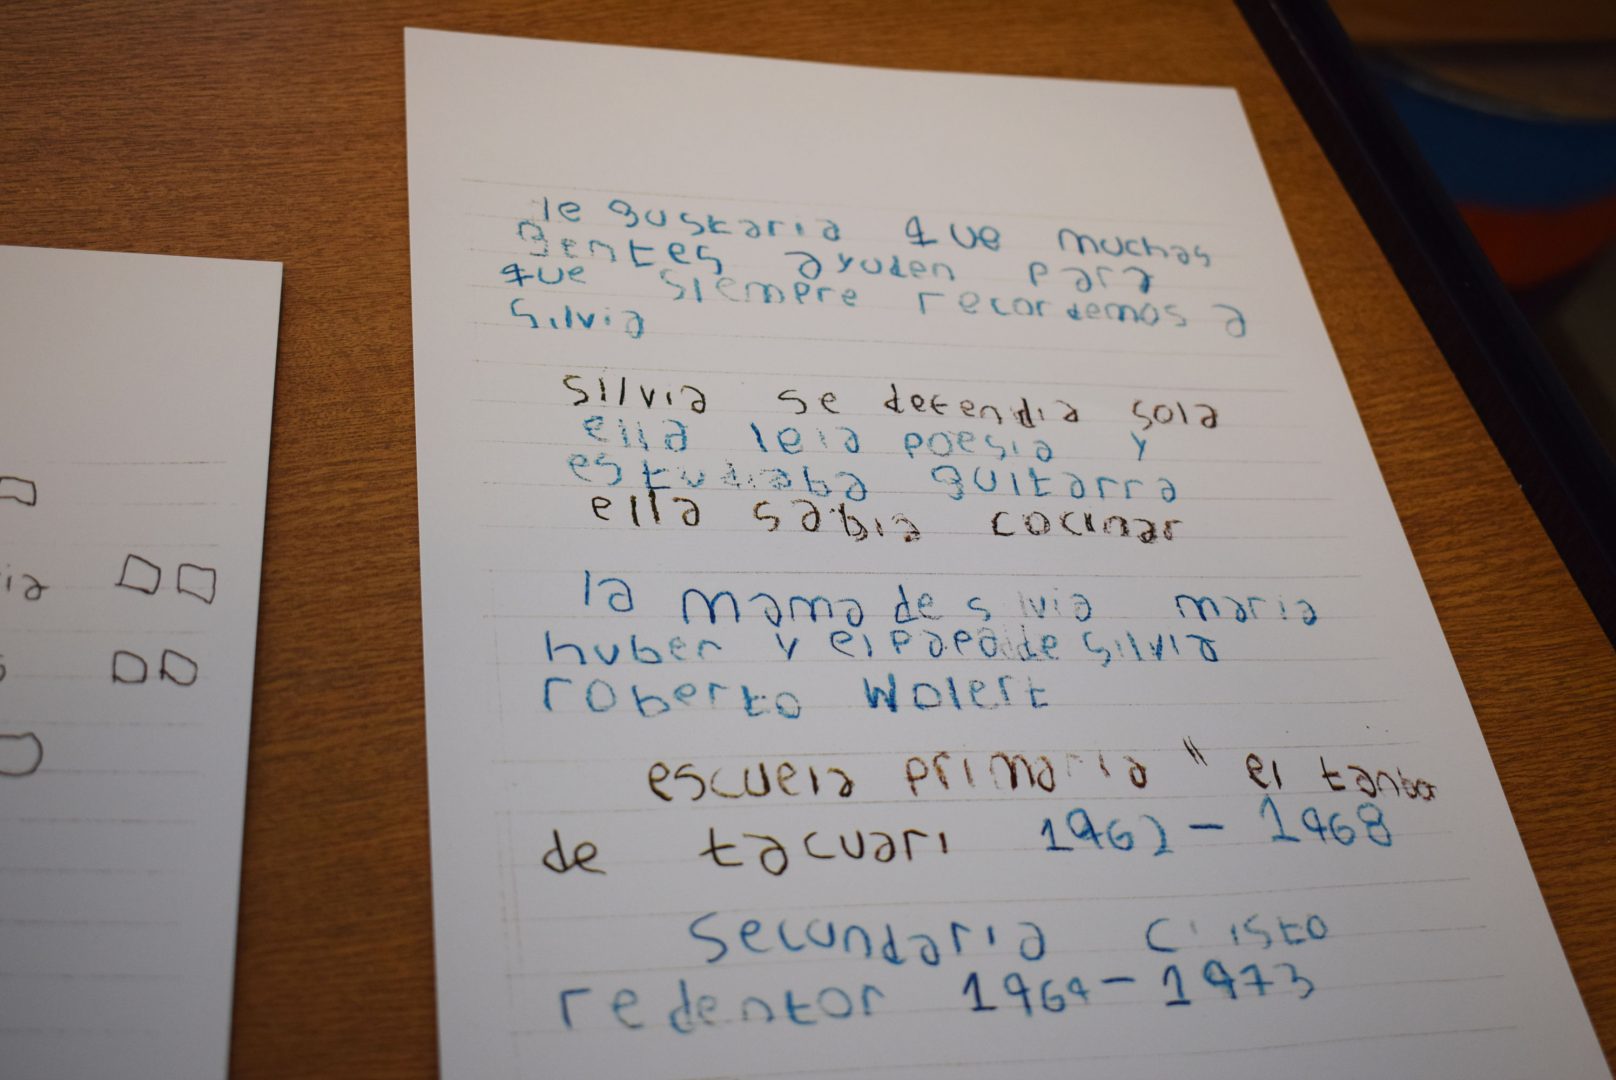 le gustaria que muchas
gentes ayuden para
que siempre recordemos a
silvia
silvia se defendia sola
ella leia poesia y
estudiaba guitarra
ella sabia cocinar
la mama de silvia maria
huber y el papa de silvia
roberto wolert
escuela primaria " el tanbor
de tacuari 1962 - 1968
secundaria cristo
redentor 1969 - 1973
ia